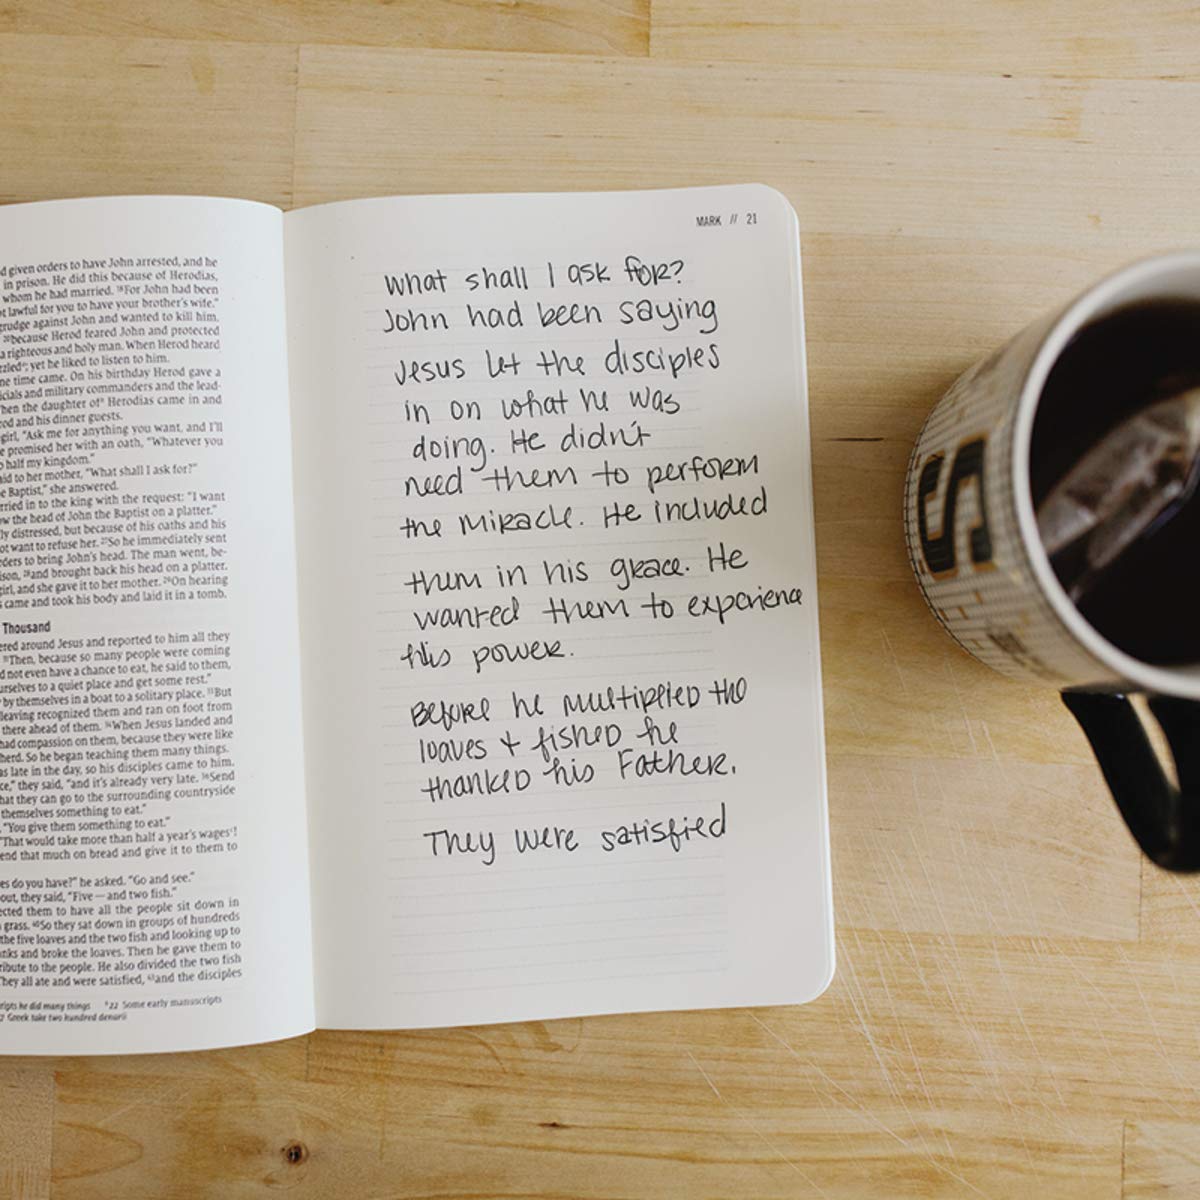 d given orders to have John arrested, and he
in prison. He did this because of Herodias,
whom he had married. ¹⁸For John had been
t lawful for you to have your brother's wife."
grudge against John and wanted to kill him.
²⁰because Herod feared John and protected
a righteous and holy man. When Herod heard
zled; yet he liked to listen to him.
ne time came. On his birthday Herod gave a
icials and military commanders and the lead-
hen the daughter of Herodias came in and
od and his dinner guests.
girl, "Ask me for anything you want, and I'll
e promised her with an oath, "Whatever you
o half my kingdom."
aid to her mother, "What shall I ask for?"
e Baptist," she answered.
rried in to the king with the request: "I want
w the head of John the Baptist on a platter."
ly distressed, but because of his oaths and his
ot want to refuse her. ²⁷So he immediately sent
ders to bring John's head. The man went, be-
ison, ²⁸and brought back his head on a platter.
girl, and she gave it to her mother. ²⁹On hearing
s came and took his body and laid it in a tomb.
Thousand
ered around Jesus and reported to him all they
³¹Then, because so many people were coming
d not even have a chance to eat, he said to them,
urselves to a quiet place and get some rest."
by themselves in a boat to a solitary place. ³³But
leaving recognized them and ran on foot from
there ahead of them. ³⁴When Jesus landed and
had compassion on them, because they were like
herd. So he began teaching them many things.
as late in the day, so his disciples came to him.
ce," they said, "and it's already very late. ³⁶Send
hat they can go to the surrounding countryside
themselves something to eat."
"You give them something to eat."
"That would take more than half a year's wages!
end that much on bread and give it to them to
es do you have?" he asked. "Go and see."
out, they said, "Five—and two fish."
cted them to have all the people sit down in
grass. ⁴⁰So they sat down in groups of hundreds
the five loaves and the two fish and looking up to
nks and broke the loaves. Then he gave them to
ribute to the people. He also divided the two fish
They all ate and were satisfied, ⁴³and the disciples
ripts he did many things 22 Some early manuscripts
7 Greek take two hundred denarii
MARK // 21
What shall I ask for?
John had been saying
Jesus let the disciples
in on what he was
doing. He didn't
need them to perform
the miracle. He included
them in his grace. He
wanted them to experience
his power.
Before he multiplied the
loaves + fished he
thanked his Father.
They were satisfied
S